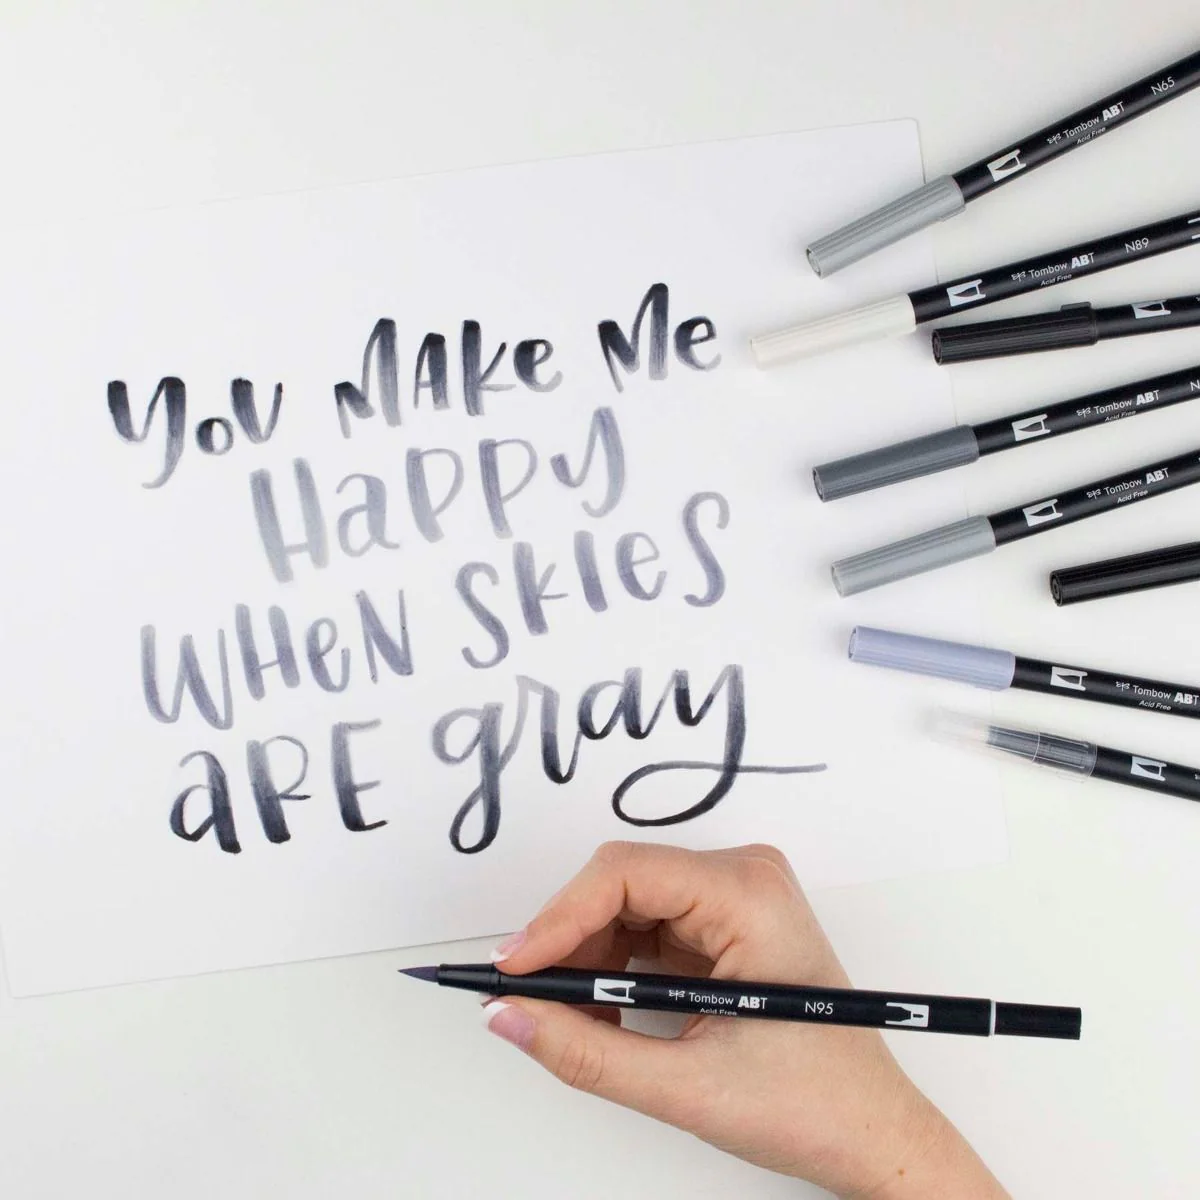 YOU MAKE Me
Happy
WHeN SKIeS
aRE gray
Tombow ABT N65
Acid Free
Tombow ABT N89
Acid Free
Tombow ABT N
Acid Free
Tombow ABT
Acid Free
Tombow ABT
Acid Free
Tombow ABT N95
Acid Free